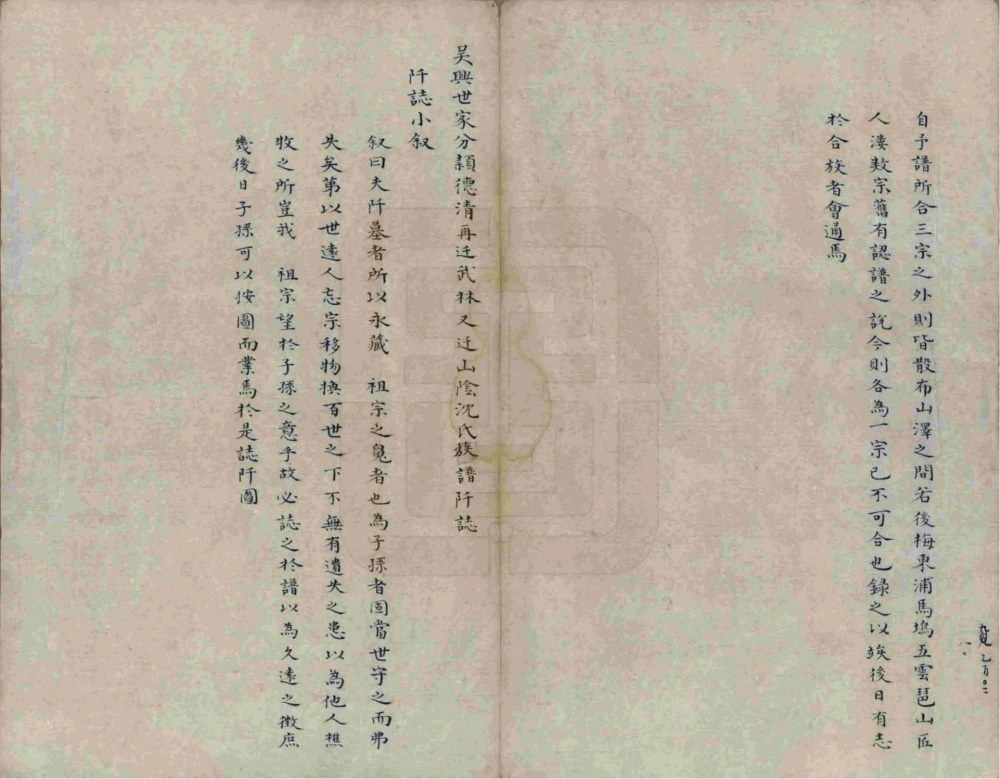 自予譜所合三宗之外則皆散布山澤之間若後梅東浦馬塢五雲琶山匠
人漊数宗舊有認譜之說今則各為一宗已不可合也錄之以竢後日有志
於合族者會通焉
吳興世家分頴德清再迁武林又迁山陰沈氏族譜阡誌
阡誌小叙
叙曰夫阡墓者所以永藏 祖宗之䰟者也為子孫者固當世守之而弗
失矣第以世遠人忘宗移物換百世之下不無有遺失之患以為他人樵
牧之所豈我 祖宗望於子孫之意乎故必誌之於譜以為久遠之徵庶
幾後日子孫可以按圖而業焉於是誌阡圖